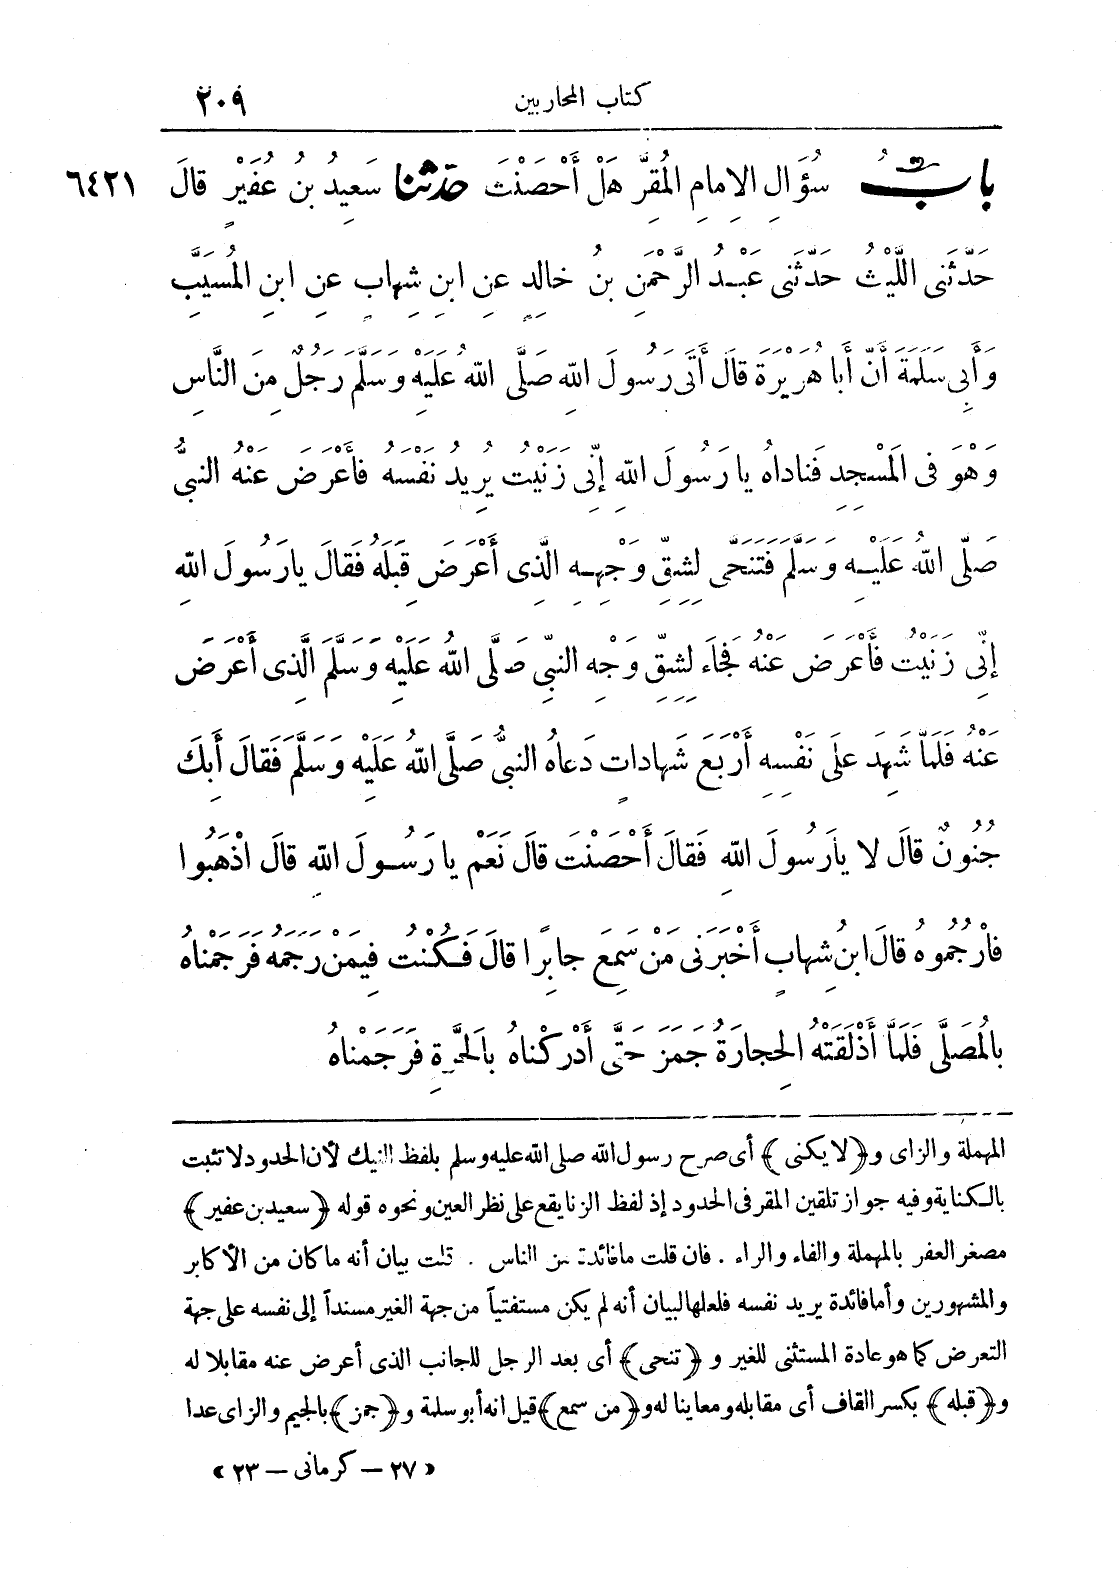 كتاب المحاربين ٢٠٩
بابُ سُؤَالِ الإِمامِ المُقِرَّ هَلْ أَحْصَنْتَ حدّثنا سَعِيدُ بنُ عُفَيْرٍ قالَ ٦٤٢١
حَدَّثَنِى اللَّيْثُ حَدَّثَنِى عَبْدُ الرَّحْمٰنِ بنُ خالِدٍ عنِ ابنِ شِهابٍ عنِ ابنِ المُسَيَّبِ
وَأَبِى سَلَمَةَ أَنَّ أَبا هُرَيْرَةَ قالَ أَتَى رَسُولَ اللهِ صَلَّى اللهُ عَلَيْهِ وَسَلَّمَ رَجُلٌ مِنَ النَّاسِ
وَهْوَ فى المَسْجِدِ فَناداهُ يا رَسُولَ اللهِ إِنِّى زَنَيْتُ يُرِيدُ نَفْسَهُ فأَعْرَضَ عَنْهُ النبىُّ
صَلَّى اللهُ عَلَيْهِ وَسَلَّمَ فَتَنَحَّى لِشِقِّ وَجْهِهِ الَّذِى أَعْرَضَ قِبَلَهُ فَقالَ يارَسُولَ اللهِ
إِنِّى زَنَيْتُ فأَعْرَضَ عَنْهُ فَجَاءَ لِشِقِّ وَجْهِ النبىِّ صَلَّى اللهُ عَلَيْهِ وَسَلَّمَ الَّذِى أَعْرَضَ
عَنْهُ فَلَمَّا شَهِدَ علَى نَفْسِهِ أَرْبَعَ شَهاداتٍ دَعاهُ النبىُّ صَلَّى اللهُ عَلَيْهِ وَسَلَّمَ فَقالَ أَبِكَ
جُنُونٌ قالَ لا يا رَسُولَ اللهِ فَقالَ أَحْصَنْتَ قالَ نَعَمْ يا رَسُولَ اللهِ قالَ اذْهَبُوا
فارْجُمُوهُ قالَ ابنُ شِهابٍ أَخْبَرَنِى مَنْ سَمِعَ جابِرًا قالَ فَكُنْتُ فِيمَنْ رَجَمَهُ فَرَجَمْناهُ
بالمُصَلَّى فَلَمَّا أَذْلَقَتْهُ الحِجارَةُ جَمَزَ حَتَّى أَدْرَكْناهُ بالحَرَّةِ فَرَجَمْناهُ
المهملة والزاى و﴿لا يكنى﴾ أى صرح رسول الله صلى الله عليه وسلم بلفظ النيك لأن الحدود لا تثبت
بالكناية وفيه جواز تلقين المقر فى الحدود إذ لفظ الزنا يقع على نظر العين ونحوه قوله ﴿سعيد بن عفير﴾
مصغر العفر بالمهملة والفاء والراء . فان قلت ما فائدة من الناس . قلت بيان أنه ما كان من الأكابر
والمشهورين وأما فائدة يريد نفسه فلعلها لبيان أنه لم يكن مستفتياً من جهة الغير مسنداً إلى نفسه على جهة
التعرض كما هو عادة المستثنى للغير و ﴿تنحى﴾ أى بعد الرجل للجانب الذى أعرض عنه مقابلا له
و﴿قبله﴾ بكسر القاف أى مقابله ومعاينا له و﴿من سمع﴾ قيل انه أبو سلمة و﴿جمز﴾ بالجيم والزاى عدا
« ٢٧ – كرمانى – ٢٣ »